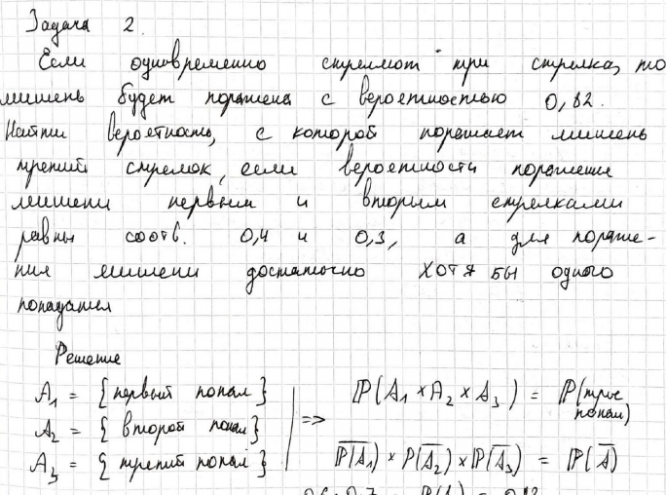 Задача 2.
Если одновременно стреляют три стрелка, то
мишень будет поражена с вероятностью 0,82.
Найти вероятность, с которой поражает мишень
третий стрелок, если вероятности поражения
мишени первым и вторым стрелками
равны соотв. 0,4 и 0,3, а для пораже-
ния мишени достаточно ХОТЯ БЫ одного
попадания
Решение
A₁ = { первый попал }
A₂ = { второй попал }
A₃ = { третий попал }
=> ℙ(A₁ × A₂ × A₃) = ℙ(трое попали)
ℙ(A̅₁) × P(A̅₂) × ℙ(A̅₃) = ℙ(A̅)